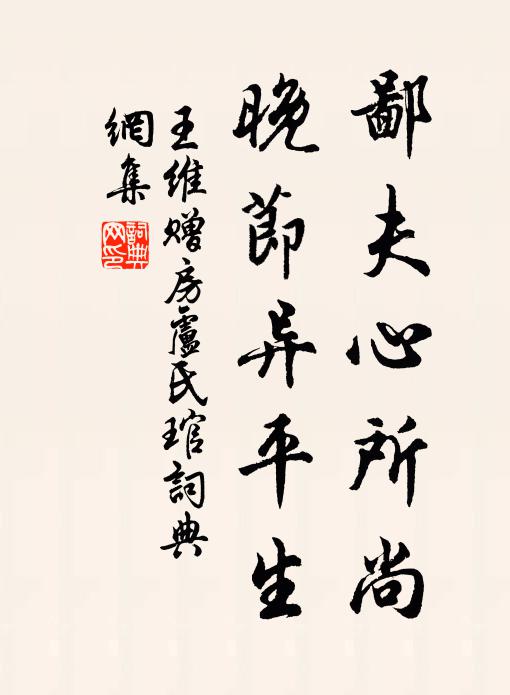 鄙夫心所尚
晚節异平生
王維赠房盧氏琯詞典
網集
詞典
网印